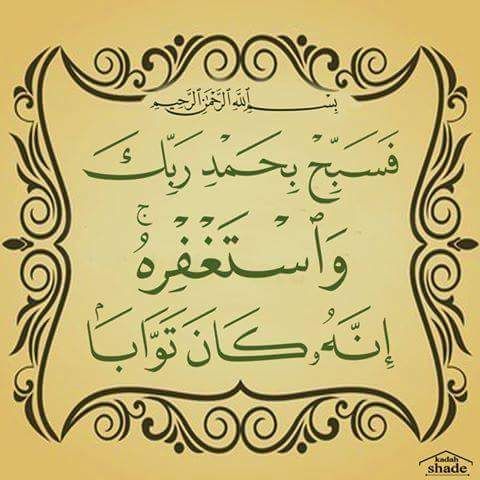 بِسْمِ ٱللَّهِ ٱلرَّحْمَٰنِ ٱلرَّحِيمِ
فَسَبِّحْ بِحَمْدِ رَبِّكَ
وَٱسْتَغْفِرْهُ ۚ
إِنَّهُۥ كَانَ تَوَّابَۢا
kadah
shade